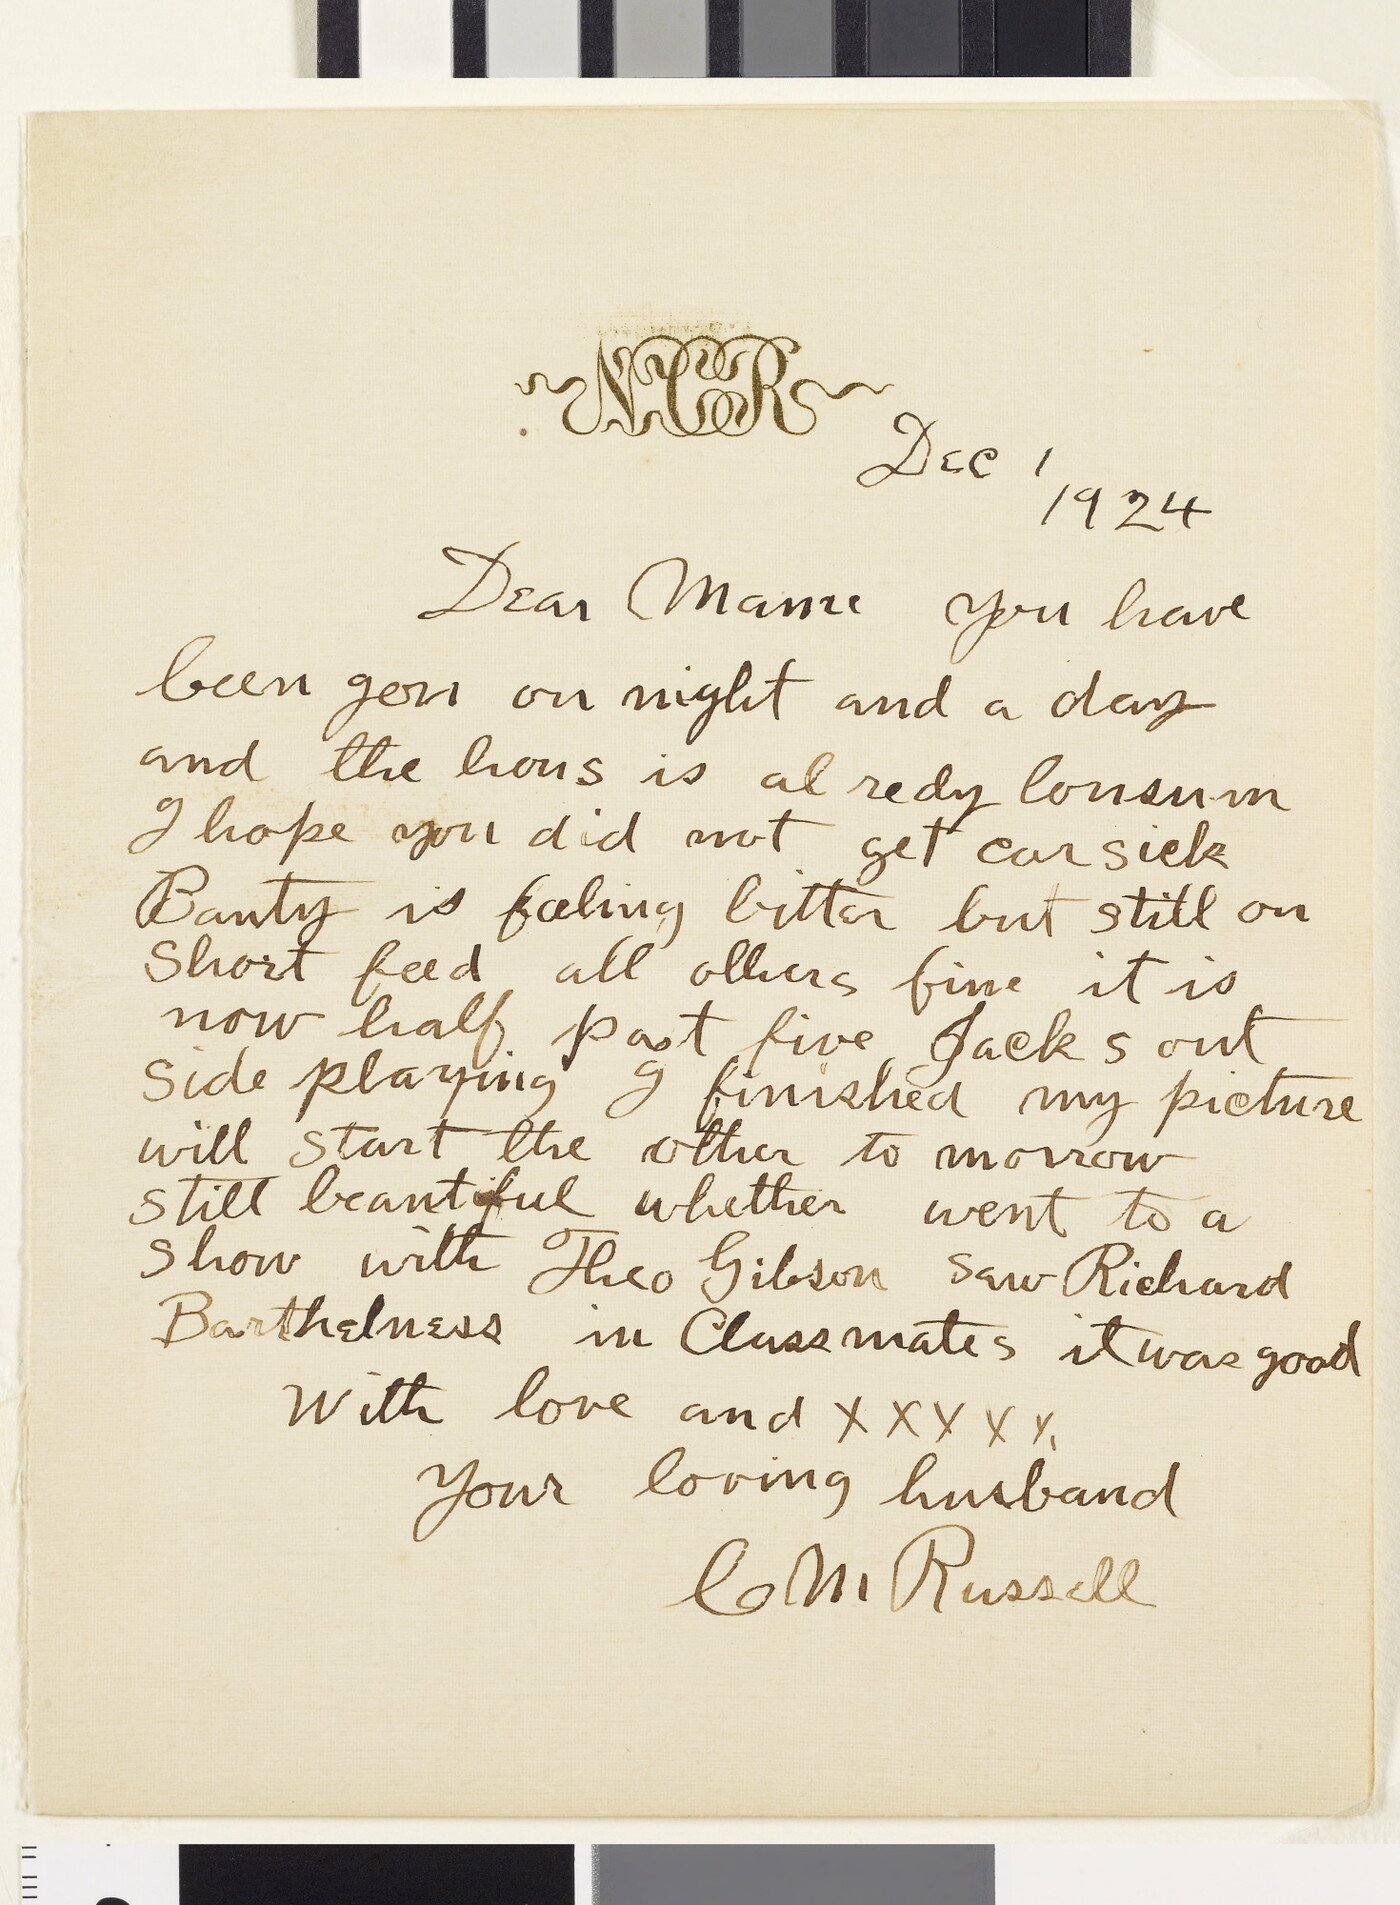 NCR
Dec 1
1924
Dear Mame you have
been gon on night and a day
and the hous is al redy lonsum
I hope you did not get car sick
Banty is feeling bitter but still on
short feed all others fine it is
now half past five Jack s out
side playing I finished my picture
will start the other to morrow
still beautiful whether went to a
show with Theo Gibson saw Richard
Barthelness in Classmates it was good
With love and X X X X X
Your loving husband
C M Russell